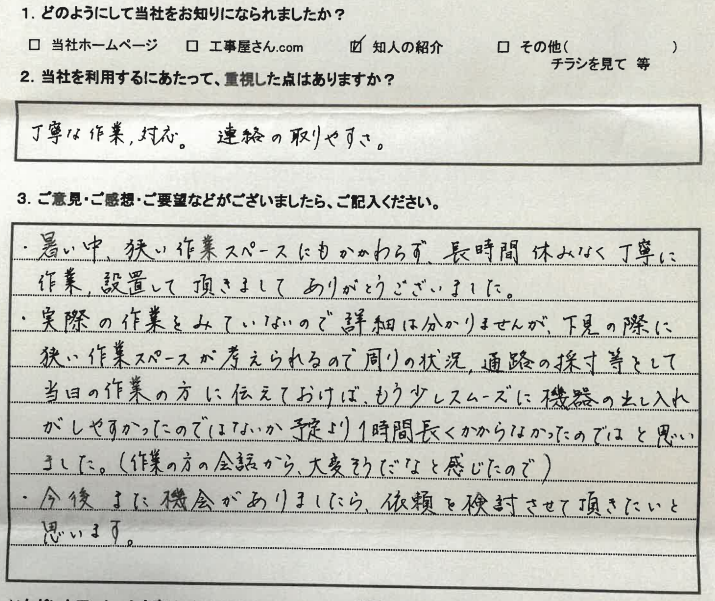 1. どのようにして当社をお知りになられましたか？
□ 当社ホームページ □ 工事屋さん.com ☑ 知人の紹介 □ その他( )
チラシを見て 等
2. 当社を利用するにあたって、重視した点はありますか？
丁寧な作業,対応。 連絡の取りやすさ。
3. ご意見・ご感想・ご要望などがございましたら、ご記入ください。
・暑い中、狭い作業スペースにもかかわらず、長時間 休みなく丁寧に
作業,設置して頂きまして ありがとうございました。
・実際の作業をみていないので詳細は分かりませんが、下見の際に
狭い作業スペースが考えられるので周りの状況,通路の採寸等をして
当日の作業の方に伝えておけば、もう少しスムーズに機器の出し入れ
がしやすかったのではないか 予定より1時間長くかからなかったのではと思い
ました。(作業の方の会話から、大変そうだなと感じたので)
・今後また機会がありましたら、依頼を検討させて頂きたいと
思います。